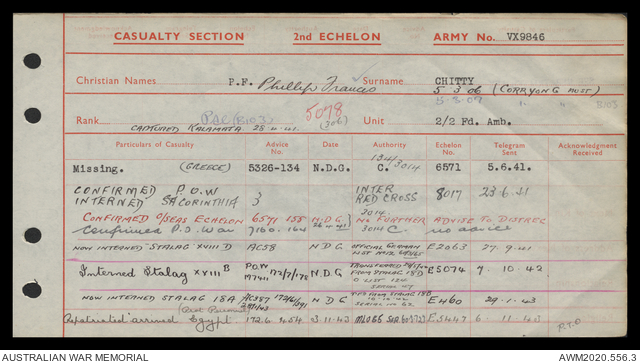 CASUALTY SECTION 2ND ECHELON ARMY No. VX9846
Christian Names P.F. Phillip Francis Surname CHITTY
5 3 06 (CORRYONG AUST)
5-3-07 " " B103
Rank Pte (B103) 5078 (306) Unit 2/2 Fd. Amb.
CAPTURED KALAMATA 28-4-41.
Particulars of Casualty Advice No. Date Authority Echelon No. Telegram Sent Acknowledgment Received
Missing. (GREECE) 5326-134 N.D.G. 134/3014 C. 6571 5.6.41.
CONFIRMED P.O.W INTER
INTERNED CORINTHIA 3 RED CROSS 8017 23.6.41
CONFIRMED O/SEAS ECHELON 6571 158 N.D.G 3014 NO FURTHER ADVISE TO DISTREC
Confirmed P.O.War 7160.164 26.4.41 3014 C no advice
NOW INTERNED STALAG XVIII D AC58 N D G OFFICIAL GERMAN LIST E2063 27.9.41
Interned Stalag XVIII B P.O.W 172/7/178 N.D.G TRANSFERRED FROM STALAG 18D E5074 9.10.42
NOW INTERNED STALAG 18A AC387 N D G T'FS FROM STALAG 18B E460 29.1.43
Repatriated arrived Egypt 172.6.454 3.11.43 E.5447 6 11 43 R.T.O
AUSTRALIAN WAR MEMORIAL AWM2020.556.3